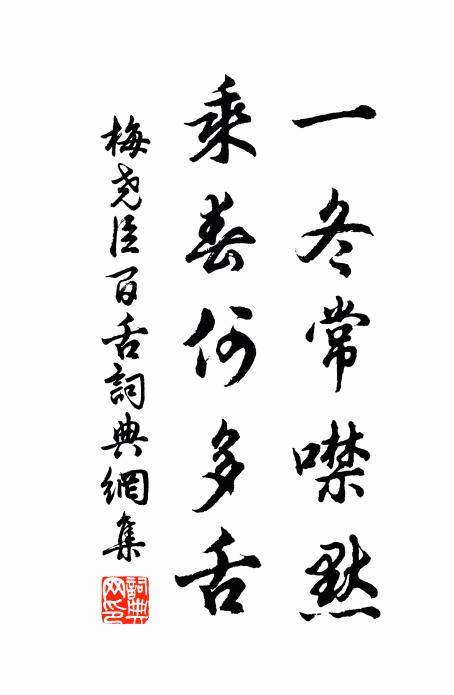 一冬常噤默
乘春何多舌
梅尧臣百舌詞典網集
詞典网印